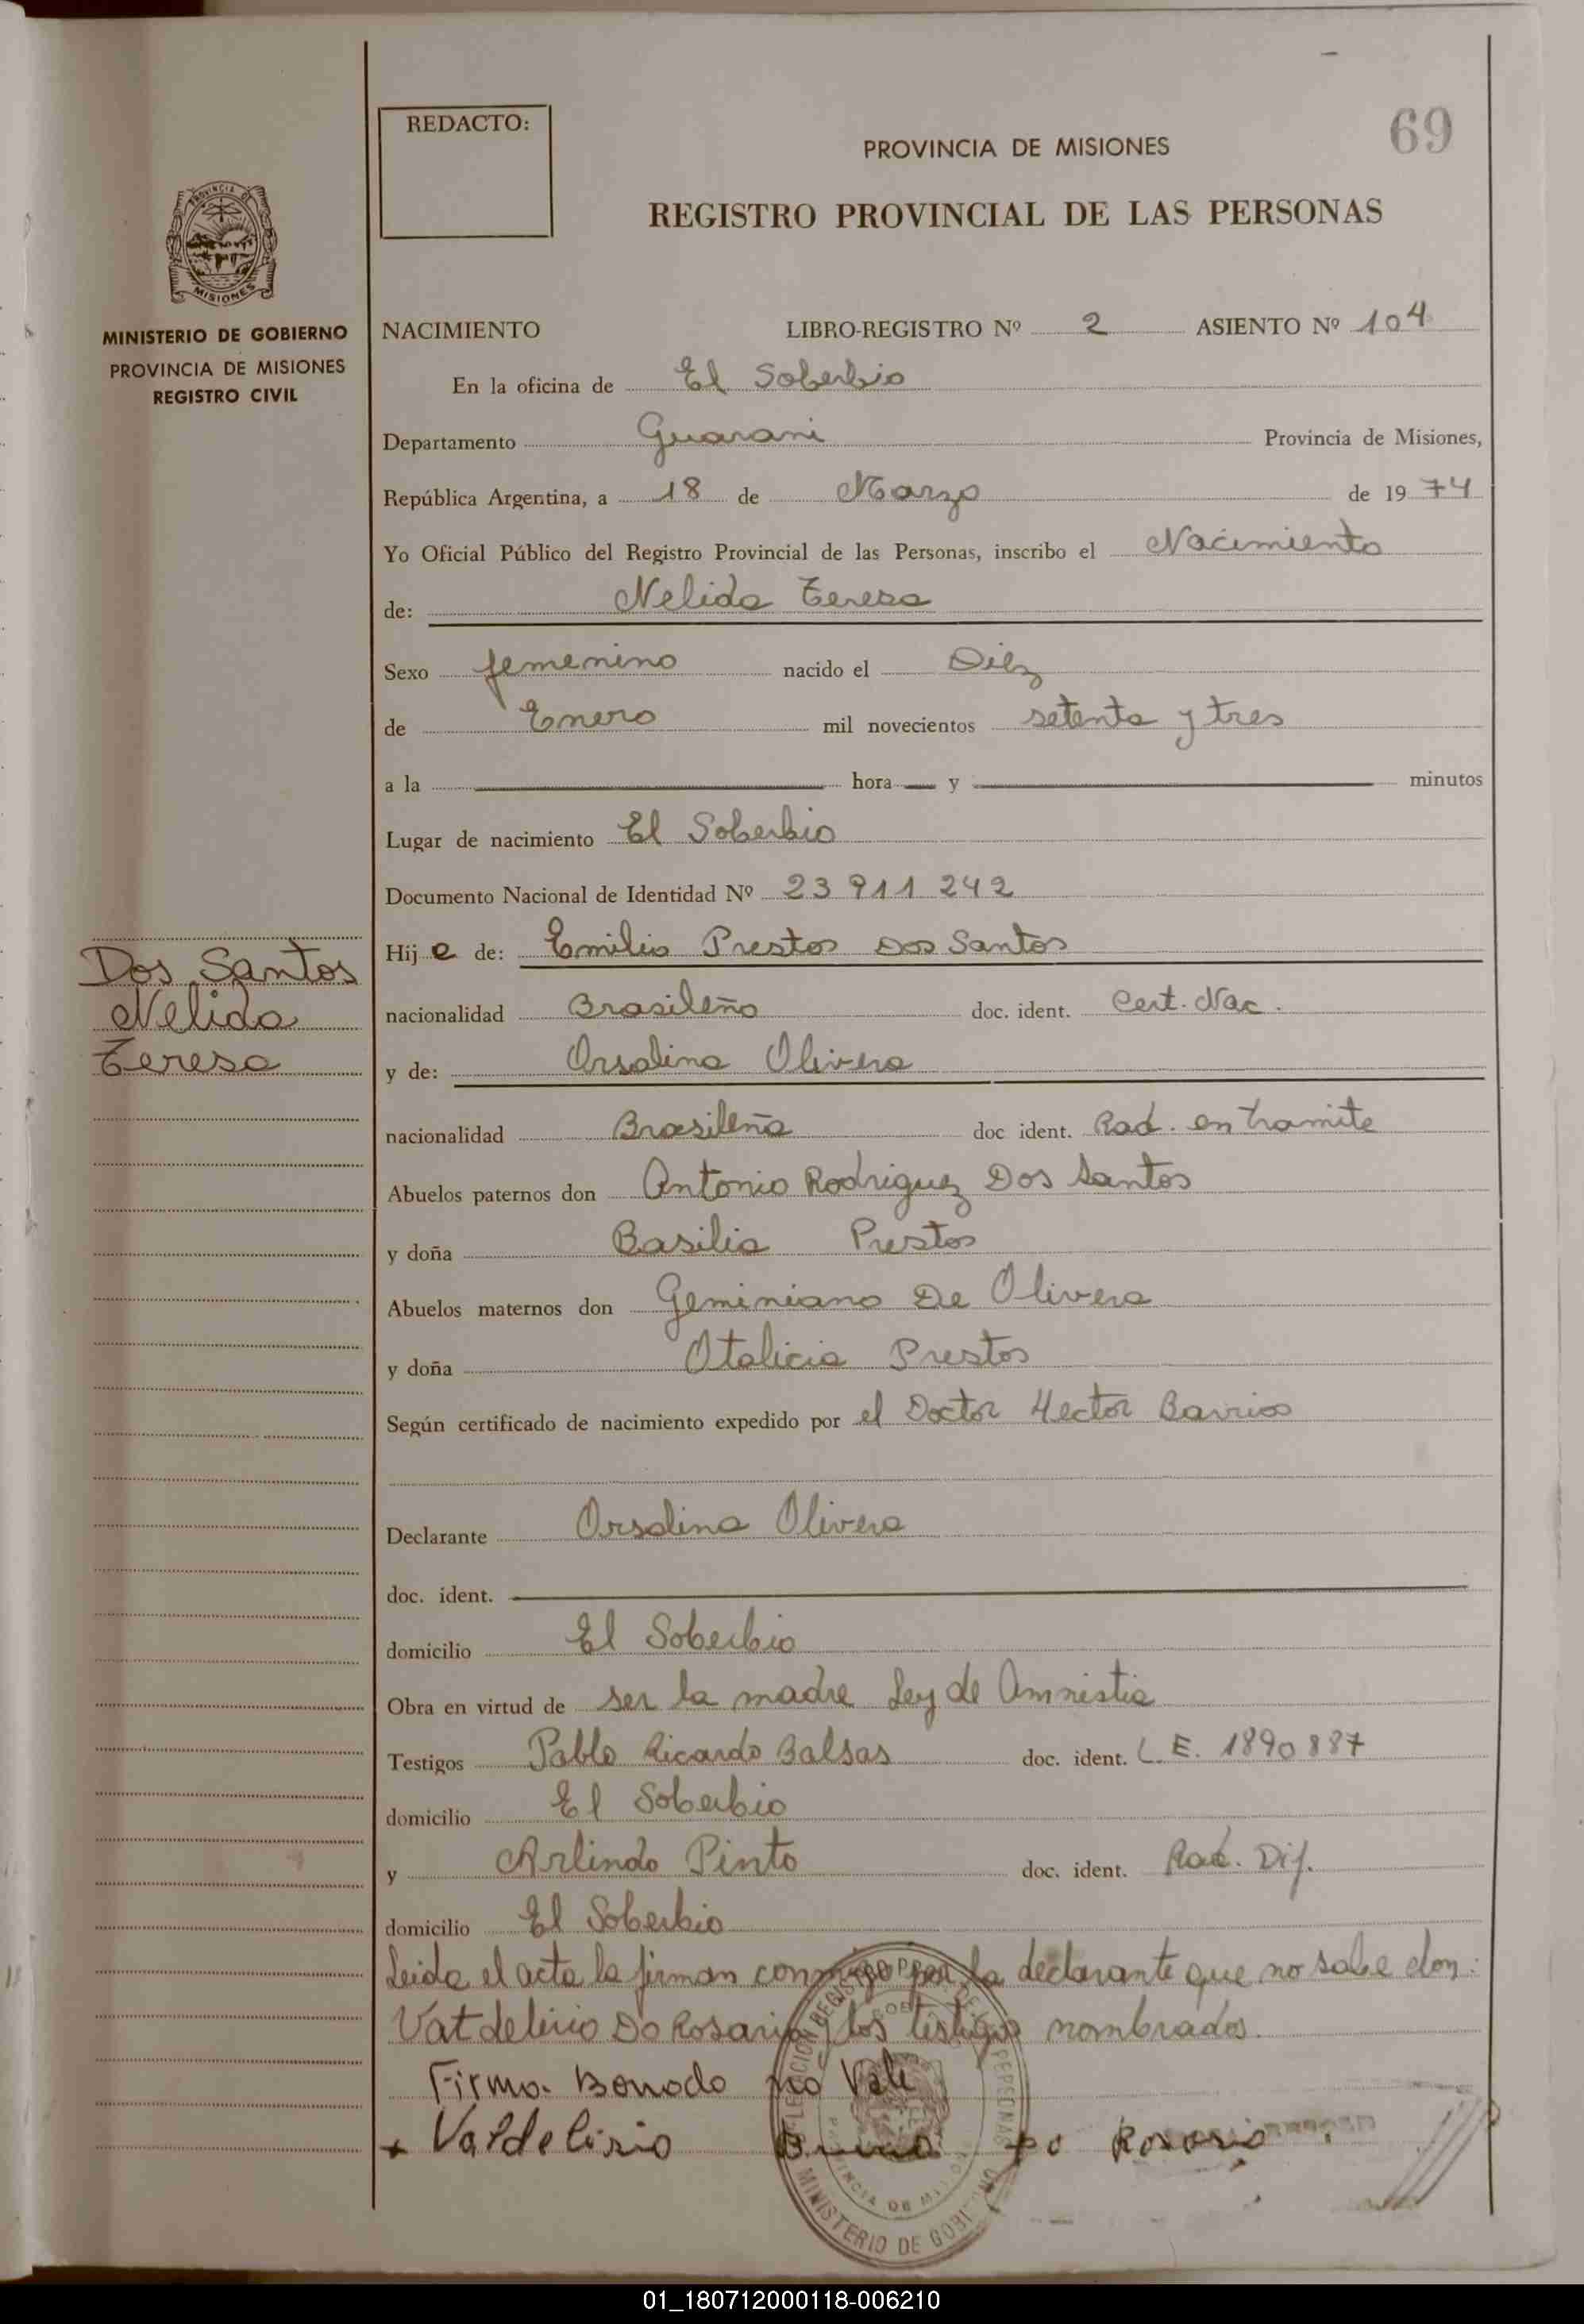 REDACTO:
69
PROVINCIA DE MISIONES
REGISTRO PROVINCIAL DE LAS PERSONAS
PROVINCIA DE
MISIONES
MINISTERIO DE GOBIERNO
PROVINCIA DE MISIONES
REGISTRO CIVIL
NACIMIENTO LIBRO-REGISTRO Nº 2 ASIENTO Nº 104
En la oficina de El Soberbio
Departamento Guarani Provincia de Misiones,
República Argentina, a 18 de Marzo de 1974
Yo Oficial Público del Registro Provincial de las Personas, inscribo el Nacimiento
de: Nelida Teresa
Sexo femenino nacido el Diez
de Enero mil novecientos setenta y tres
a la hora y minutos
Lugar de nacimiento El Soberbio
Documento Nacional de Identidad Nº 23 911 242
Dos Santos
Nelida
Teresa
Hija de: Emilio Prestos Dos Santos
nacionalidad Brasileño doc. ident. Cert. Nac.
y de: Orsalina Olivera
nacionalidad Brasileña doc ident. Rad. en tramite
Abuelos paternos don Antonio Rodriguez Dos Santos
y doña Basilia Prestos
Abuelos maternos don Geminiano De Olivera
y doña Otalicia Prestos
Según certificado de nacimiento expedido por el Doctor Hector Barrios
Declarante Orsalina Olivera
doc. ident.
domicilio El Soberbio
Obra en virtud de ser la madre Ley de Amnistia
Testigos Pablo Ricardo Balsas doc. ident. L.E. 1890887
domicilio El Soberbio
y Arlindo Pinto doc. ident. Rad. Dif.
domicilio El Soberbio
Leida el acta la firman conmigo por la declarante que no sabe don:
Vatdelirio Do Rosario y los testigos nombrados.
Firma Bonado no Vale
Valdelirio do Rosario
MINISTERIO DE GOBI
01_180712000118-006210